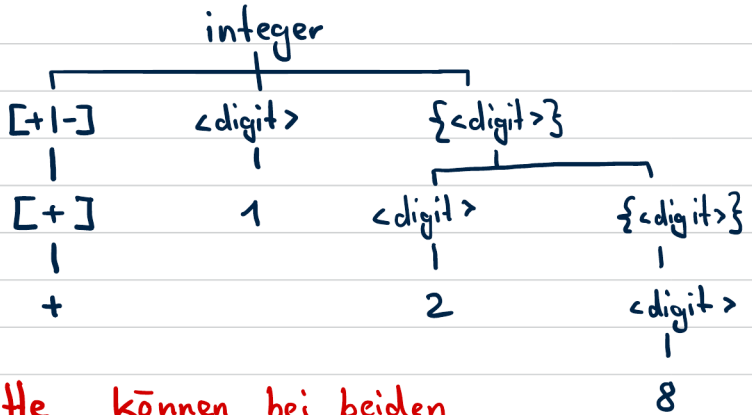 integer
[+|-] <digit> {<digit>}
[+] 1 <digit> {<digit>}
+ 2 <digit>
8
können bei beiden